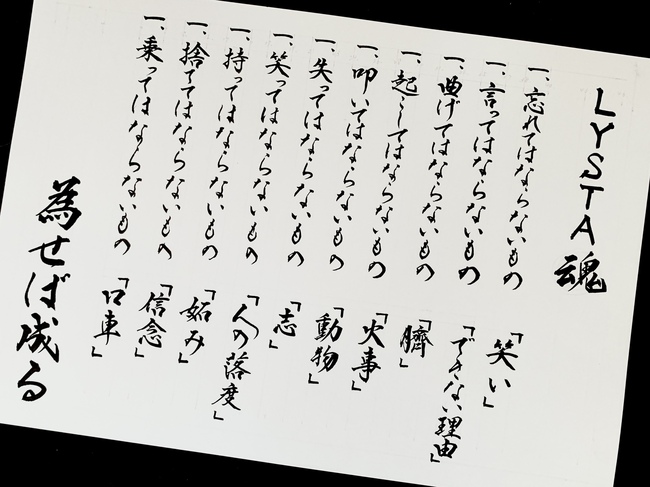 LYSTA魂
一、忘れてはならないもの「笑い」
一、言ってはならないもの「できない理由」
一、曲げてはならないもの「臍」
一、起こしてはならないもの「火事」
一、叩いてはならないもの「動物」
一、失ってはならないもの「志」
一、笑ってはならないもの「人の落度」
一、持ってはならないもの「妬み」
一、捨ててはならないもの「信念」
一、乗ってはならないもの「口車」
為せば成る